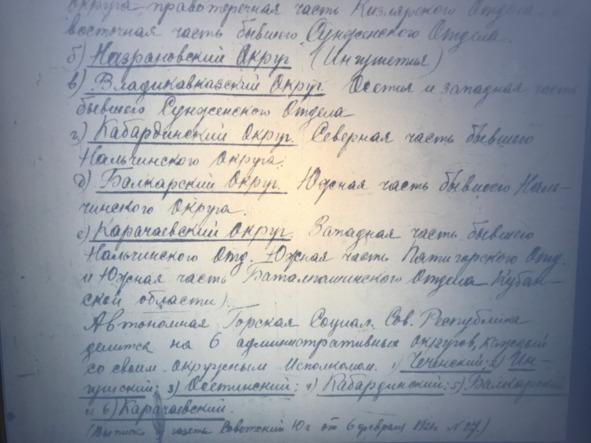 округа правотеречная часть Кизлярского Отдела и
восточная часть бывшего Сунженского Отдела.
б) Назрановский Округ (Ингушетия)
в) Владикавказский Округ Осетия и западная часть
бывшего Сунженского Отдела
г) Кабардинский Округ. Северная часть бывшего
Нальчинского Округа.
д) Балкарский Округ. Южная часть бывшего Наль-
чинского Округа.
е) Карачаевский Округ. Западная часть бывшего
Нальчинского Отд. Южная часть Пятигорского Отд.
и Южная часть Баталпашинского Отдела Кубан-
ской области).
Автономная Горская Социал. Сов. Республика
делится на 6 административных округов, каждый
со своим окружным Исполкомом. 1) Чеченский; 2) Ин-
гушский; 3) Осетинский; 4) Кабардинский; 5) Балкарский
и 6) Карачаевский.
(Выписка газета Советский Юг от 6 февраля 1921 г. № 27.)